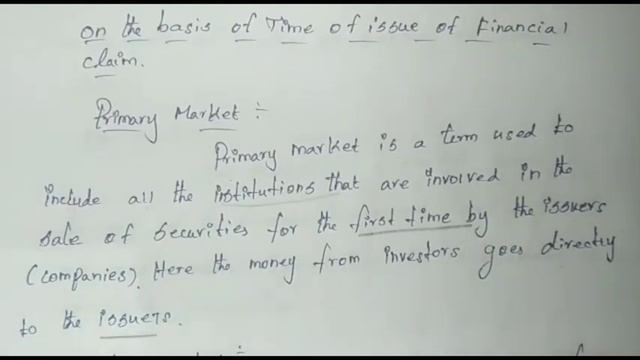 on the basis of Time of issue of Financial
claim.
Primary Market :-
Primary market is a term used to
include all the institutions that are involved in the
sale of securities for the first time by the issuers
(companies). Here the money from investors goes directly
to the issuers.